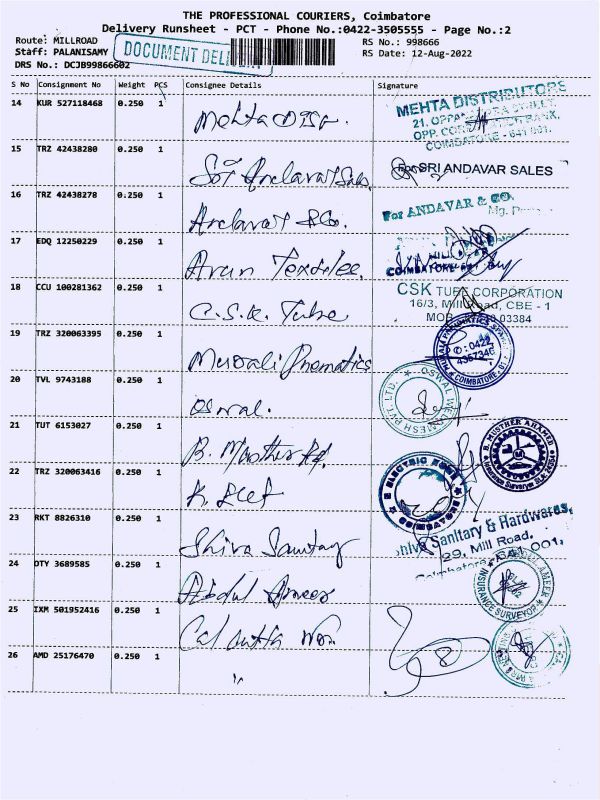 THE PROFESSIONAL COURIERS, Coimbatore
Delivery Runsheet - PCT - Phone No.:0422-3505555 - Page No.:2
Route: MILLROAD
RS No.: 998666
Staff: PALANISAMY
RS Date: 12-Aug-2022
DOCUMENT
DRS No.: DCJB99866602
S No Consignment No Weight PCS Consignee Details Signature
14 KUR 527118468 0.250 1 Mehta
MEHTA DISTRIBUTORS
COIMBATORE - 641 001.
15 TRZ 42438280 0.250 1 Sri Andavar Sales
For SRI ANDAVAR SALES
16 TRZ 42438278 0.250 1 Andavar & Co.
For ANDAVAR & CO.
17 EDQ 12250229 0.250 1 Arun Textilee.
COIMBATORE
18 CCU 100281362 0.250 1 C.S.K. Tube
CSK TUBE CORPORATION
16/3, Mill Road, CBE - 1
03384
19 TRZ 320063395 0.250 1 Murali Pnematics
0422
COIMBATORE
20 TVL 9743188 0.250 1 Oswal.
OSWAL
21 TUT 6153027 0.250 1 B. Musther
B. MUSTHER AHAMED
Insurance Surveyor
22 TRZ 320063416 0.250 1 K.
ELECTRIC
COIMBATORE
23 RKT 8826310 0.250 1 Shiva Sanitary
Shiva Sanitary & Hardwares,
29, Mill Road,
24 DTY 3689585 0.250 1 Abdul Ameer
AMEER
INSURANCE SURVEYOR
25 IXM 501952416 0.250 1 Calcutta
26 AMD 25176470 0.250 1 "